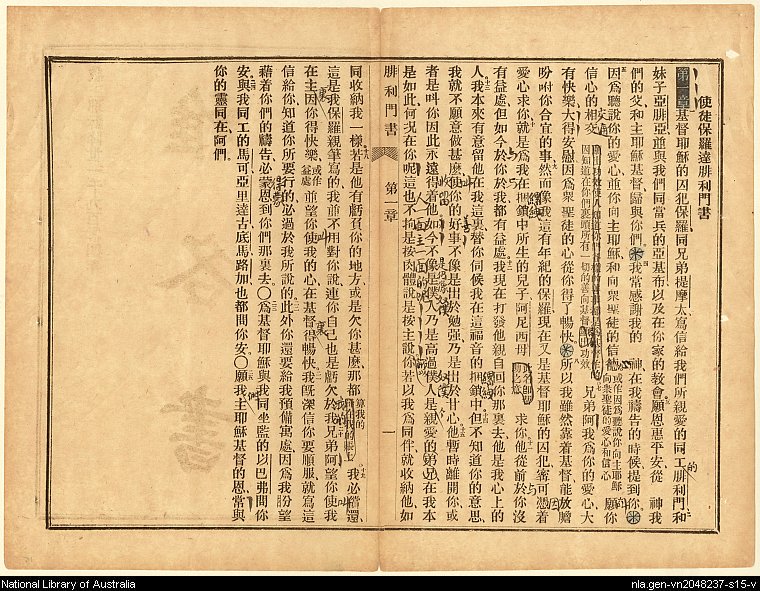 使徒保羅達腓利門書
第一章基督耶穌的囚犯保羅同兄弟提摩太寫信給我們所親愛的同工腓利門和
妹子亞腓亞並與我們同當兵的亞基布以及在你家的教會願恩惠平安從 神我
們的父和主耶穌基督歸與你們我常感謝我的 神在我禱告的時候提到你
因為聽說你的愛心並你向主耶穌和向眾聖徒的信德或作因為聽說你向主耶穌向眾聖徒的愛心和信心願你
信心的相交 因知道在你們裏頭所有一切的善向基督 功效 兄弟阿我為你的愛心大
有快樂大得安慰因為眾聖徒的心從你得了暢快所以我雖然靠着基督能放膽
吩咐你合宜的事然而像我這有年紀的保羅現在又是基督耶穌的囚犯寧可憑着
愛心求你就是為我在捆鎖中所生的兒子阿尼西母 求你他從前於你沒
有益處但如今於你於我都有益處我現在打發他親自回你那裏去他是我心上的
人我本來有意留他在我這裏替你伺候我在這福音的捆鎖中但不知道你的意思
我就不願意做甚麼使你的好事不像是出於勉強乃是出於甘心他暫時離開你或
者是叫你因此永遠得着他如今不像是僕人乃是高過僕人是親愛的弟兄在我本
是如此何況在你呢這也不拘是按肉體說是按主說你若以我為同伴就收納他如
腓利門書 第一章 一
同收納我一樣若是他有虧負你的地方或是欠你甚麼那都算我的 我必償還
這是我保羅親筆寫的我並不用對你說連你自己也是虧欠於我兄弟阿望你使我
在主因你得快樂或作益處並望你使我的心在基督得暢快我既深信你要順服就寫這
信給你知道你所要行的必過於我所說的此外你還要給我預備寓處因為我盼望
藉着你們的禱告必蒙恩到你們那裏去〇為基督耶穌與我同坐監的以巴弗問你
安與我同工的馬可亞里達古底馬路加也都問你安〇願我主耶穌基督的恩常與
你的靈同在阿們
National Library of Australia
nla.gen-vn2048237-s15-v